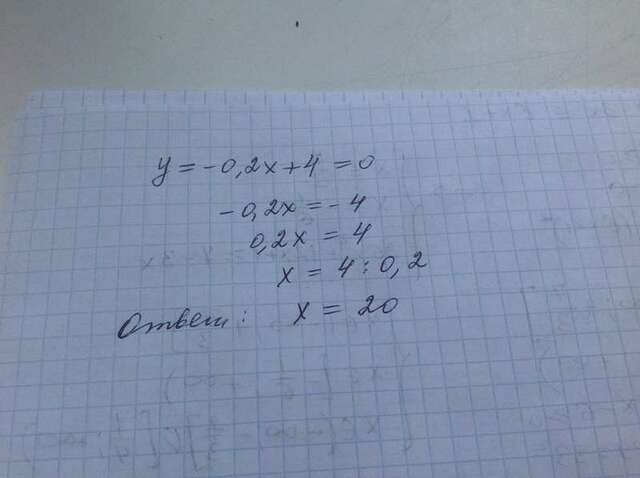 y = -0,2x+4 = 0
-0,2x = -4
0,2x = 4
x = 4:0,2
Ответ: x = 20